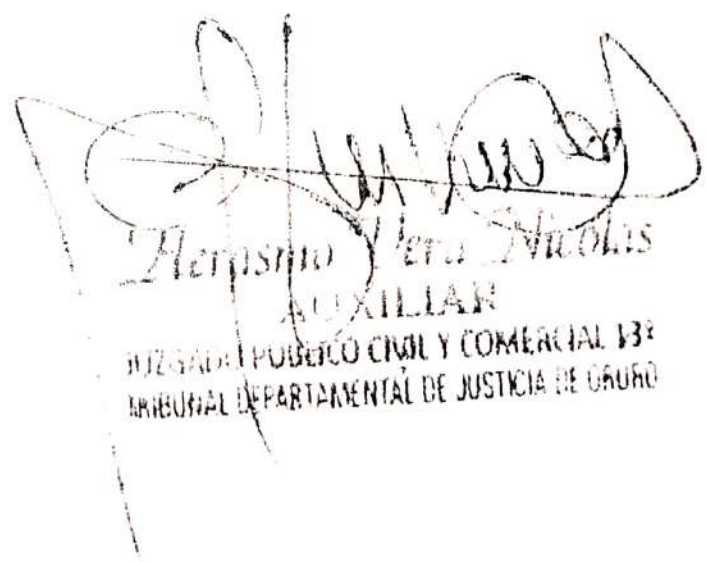 Herasmo Vera Nicolas
AUXILIAR
JUZGADO PUBLICO CIVIL Y COMERCIAL 13º
TRIBUNAL DEPARTAMENTAL DE JUSTICIA DE ORURO